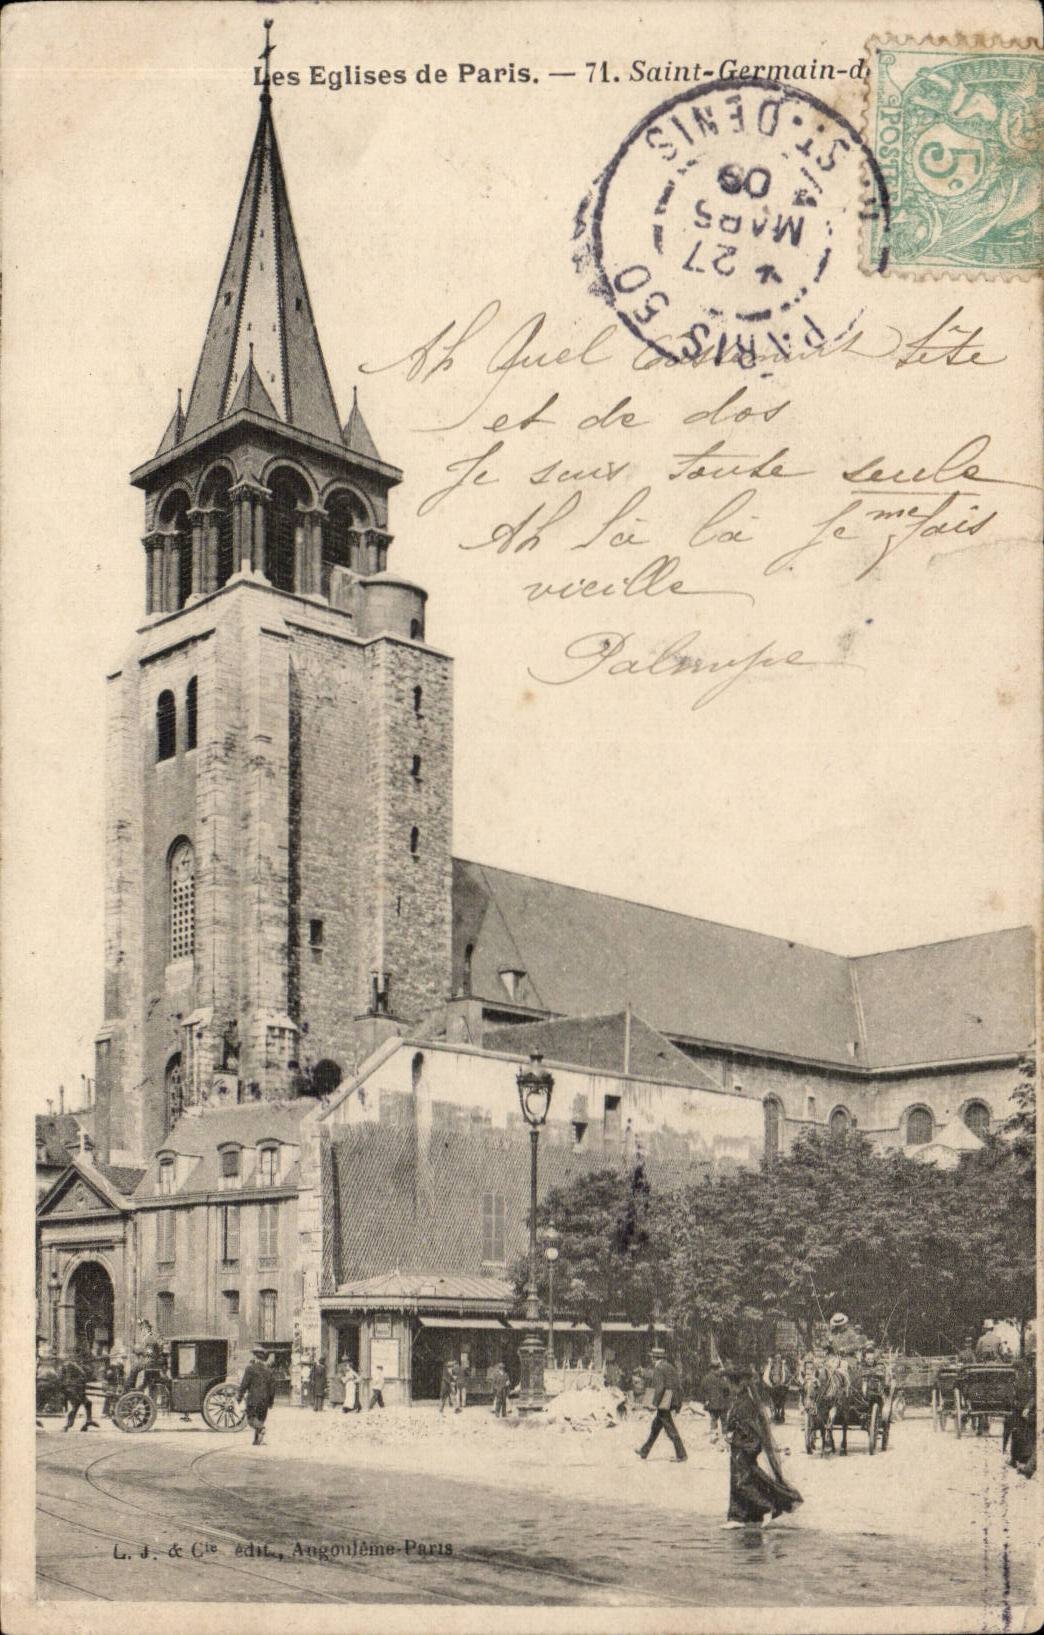 Les Eglises de Paris. — 71. Saint-Germain-d
POSTE
5c
PARIS 50
R. ST. DENIS
27
MARS
06
Ah Quel tête
et de dos
Je suis toute seule
Ah là là Je me fais
vieille
L. J. & Cie édit., Angoulême-Paris